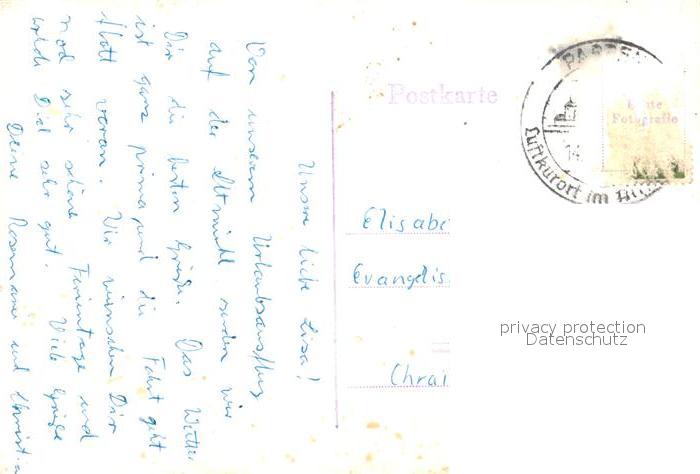 Unsere liebe Lisa!
Von unserem Urlaubsausflug
auf der Altmühl senden wir
Dir die besten Grüße. Das Wetter
ist ganz prima und die Fahrt geht
flott voran. Wir wünschen Dir
noch sehr schöne Ferientage und
Dich sehr gut. Viele Grüße
Deine Rosemarie und
Postkarte
PAPPEN
14
Luftkurort im
Echte
Fotografie
Elisabe
Evangelis
Chrai
privacy protection
Datenschutz